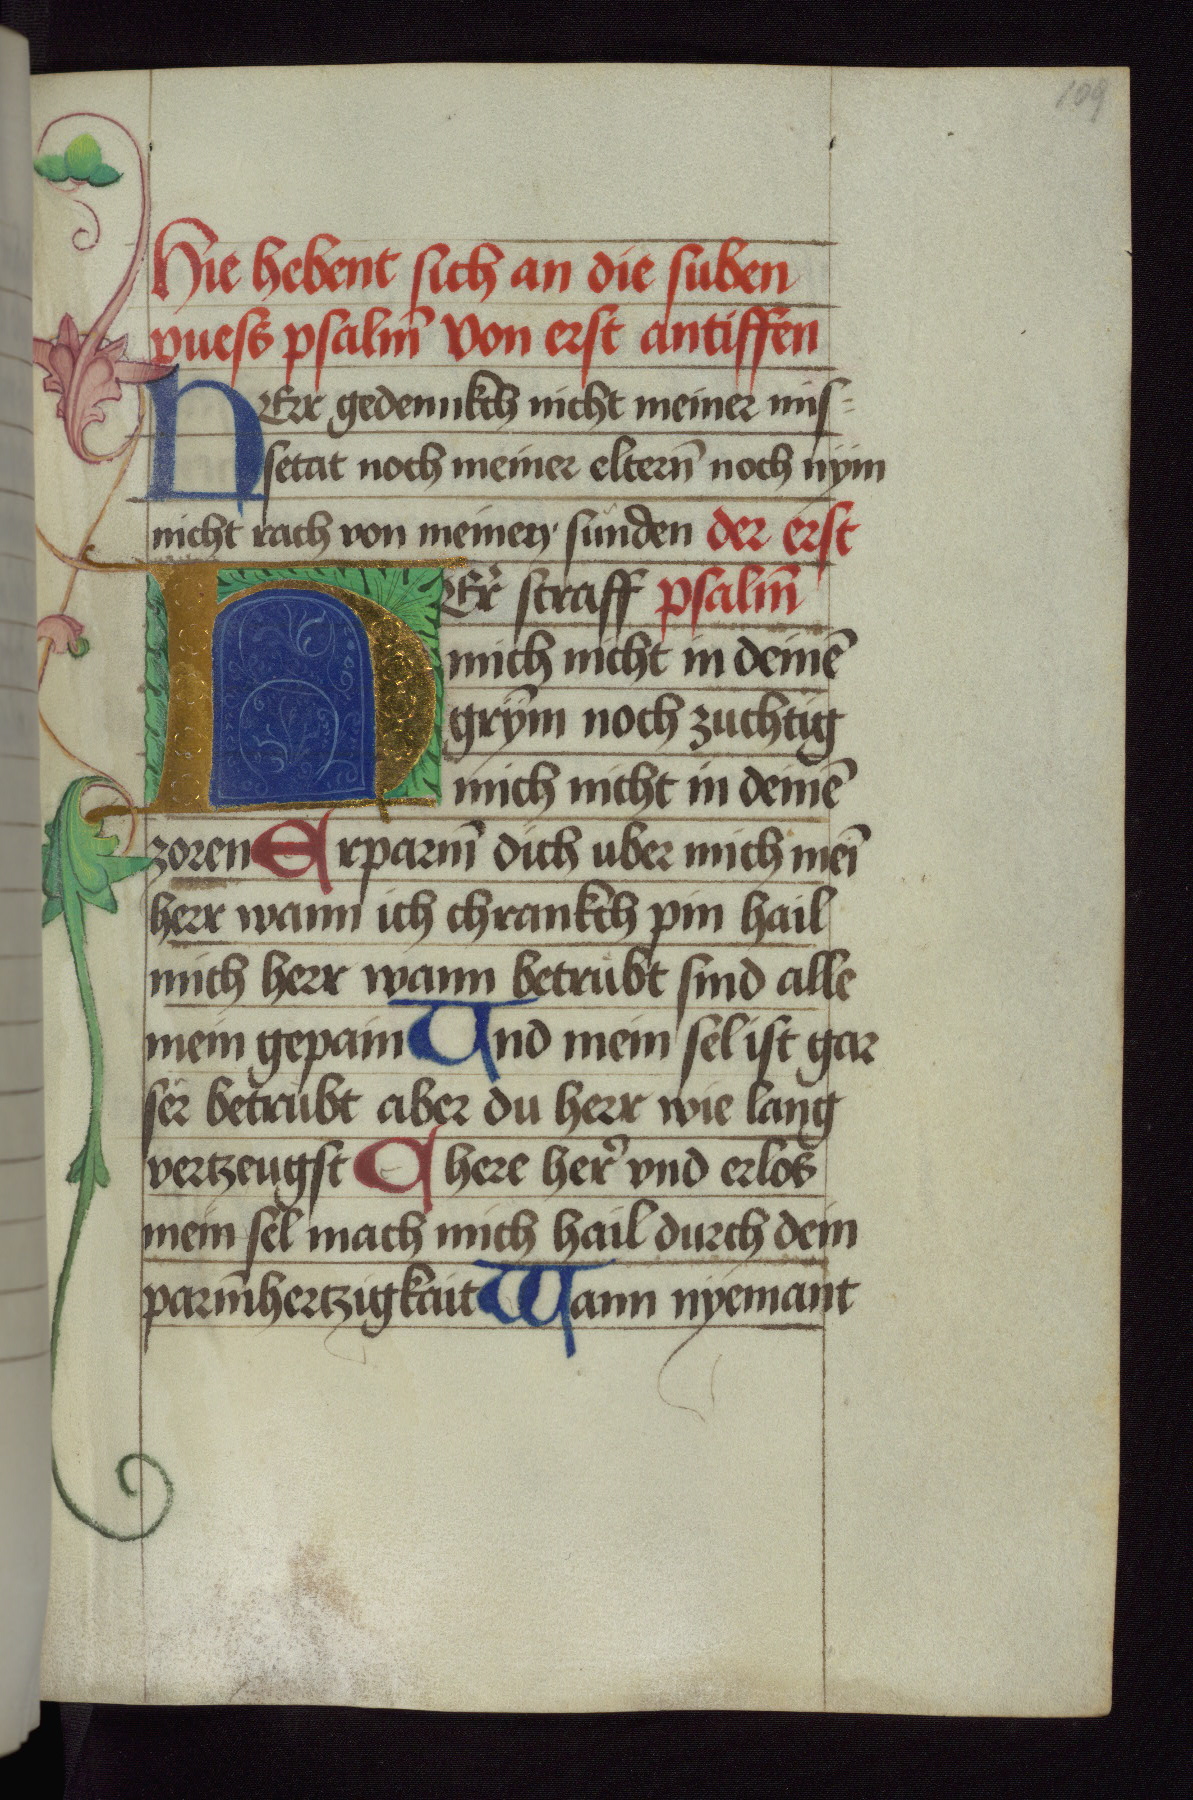 109
Hie hebent sich an die suben
puess psalm̄ Von erst antiffen
HErr gedennkch nicht meiner mis-
setat noch meiner eltern̄ noch nÿm
nicht rach von meinen sünden der erst
HEr̄ straff psalm̄
mich nicht in deinē
grÿm noch zuchtig
mich nicht in deinē
zoren Erparm̄ dich uber mich mei̅
herr wann ich chrankch pin hail
mich herr wann betrübt sind alle
mein gepain Und mein sel ist gar
ser betrübt aber du herr wie lang
vertzeugst Chere her̄ vnd erlos
mein sel mach mich hail durch dein
parm̄hertzigkait Wann nyemant